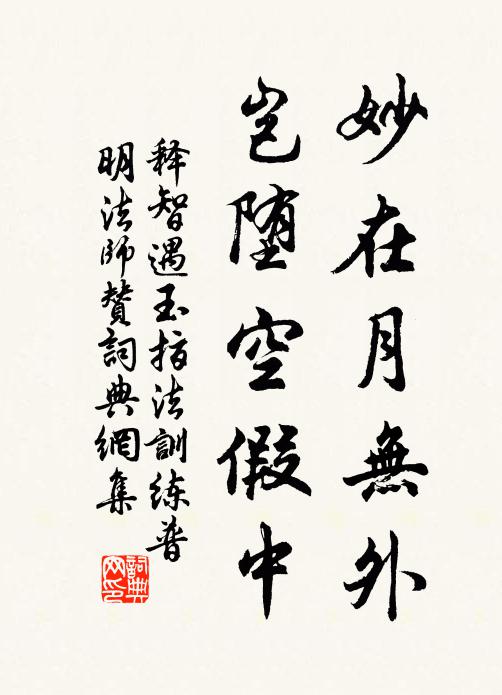 妙在月無外
岂墮空假中
释智遇玉指法訓练普
明法師贊詞典網集
詞典网印